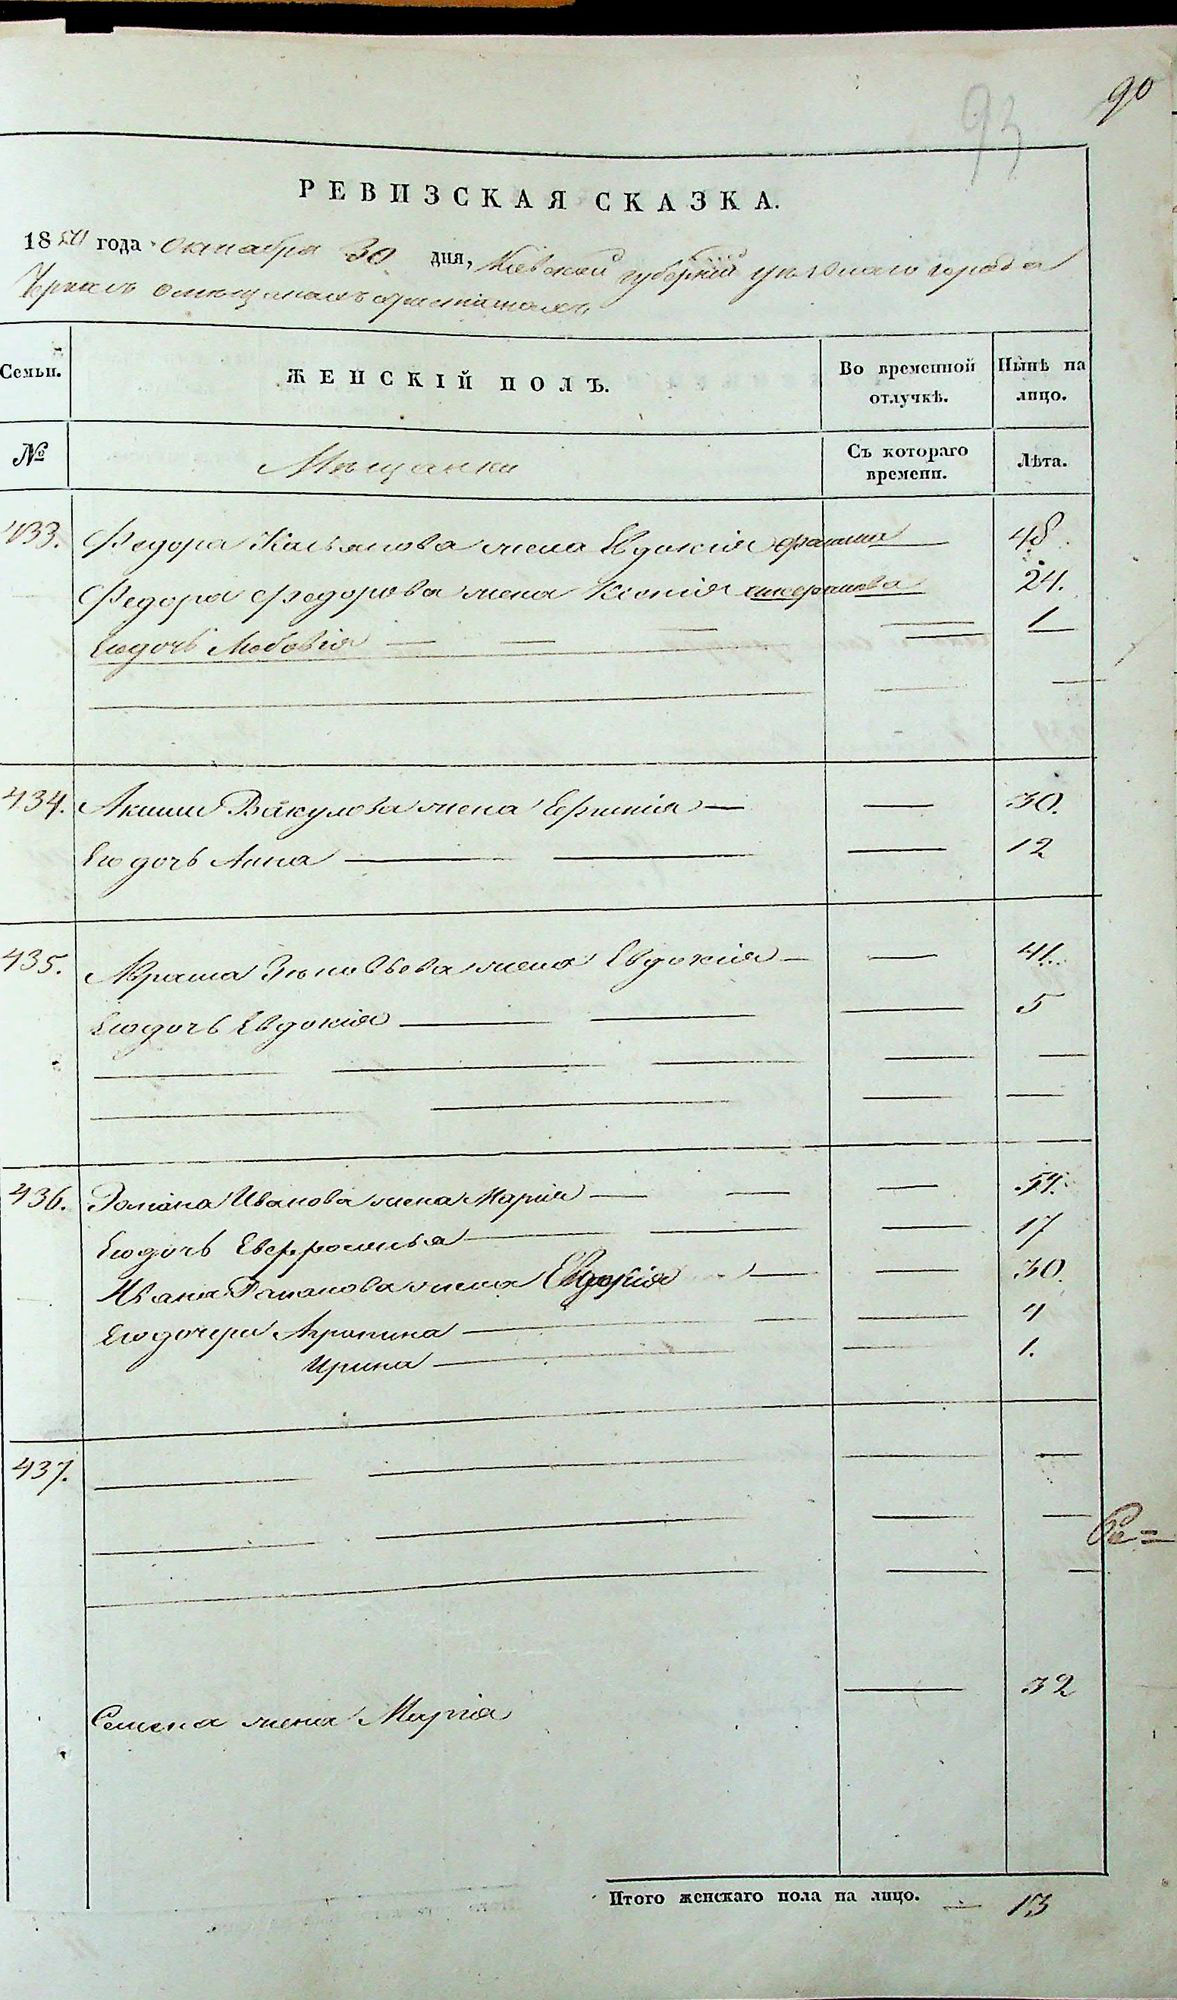 90
93
РЕВИЗСКАЯ СКАЗКА.
1850 года октября 30 дня, Кіевской губерніи уезднаго города
Черкасъ о мещанахъ христіанахъ
Семьи. ЖЕНСКІЙ ПОЛЪ. Во временной отлучкѣ. Нынѣ на лицо.
№ Мещанки Съ котораго времени. Лѣта.
433. Федора Касьянова жена Евдокія 48.
Федора Федорова жена Ксенія 24.
Его дочь 1
434. Акима Вакулова жена Ефимія — — 30.
Его дочь Анна — — — 12
435. Зиновьева жена Евдокія — — 41.
Его дочь Евдокія — — — 5
436. Романа Иванова жена Марія — — — 54.
Его дочь Евфросинья — — — 17
Ивана Романова жена Евдокія — — 30.
Его дочери Агрипина — — — 4
Ирина — — 1.
437.
Се=
Семена жена Марія — 32
Итого женскаго пола на лицо. — 13